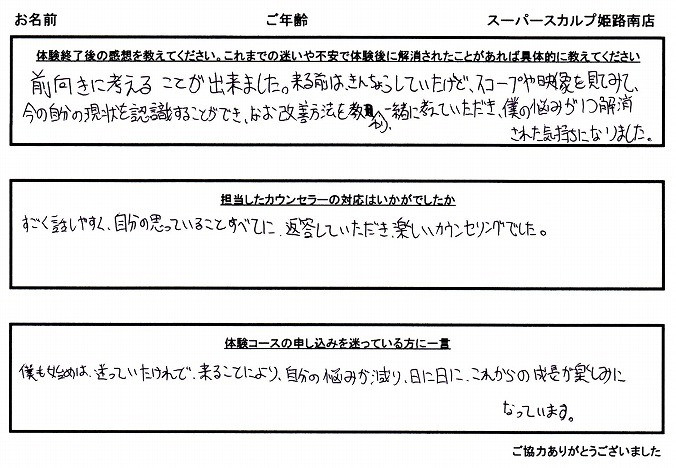 お名前 ご年齢 スーパースカルプ姫路南店
体験終了後の感想を教えてください。これまでの迷いや不安で体験後に解消されたことがあれば具体的に教えてください
前向きに考えることが出来ました。来る前は、きんちょうしていたけど、スコープや映像を見てみて、
今の自分の現状を認識することができ、なお改善方法を教わり、一緒に考えていただき、僕の悩みが1つ解消
された気持ちになりました。
担当したカウンセラーの対応はいかがでしたか
すごく話しやすく、自分の思っていることすべてに、返答していただき、楽しいカウンセリングでした。
体験コースの申し込みを迷っている方に一言
僕も始めは、迷っていたけれで、来ることにより、自分の悩みが減り、日に日に、これからの成長が楽しみに
なっています。
ご協力ありがとうございました